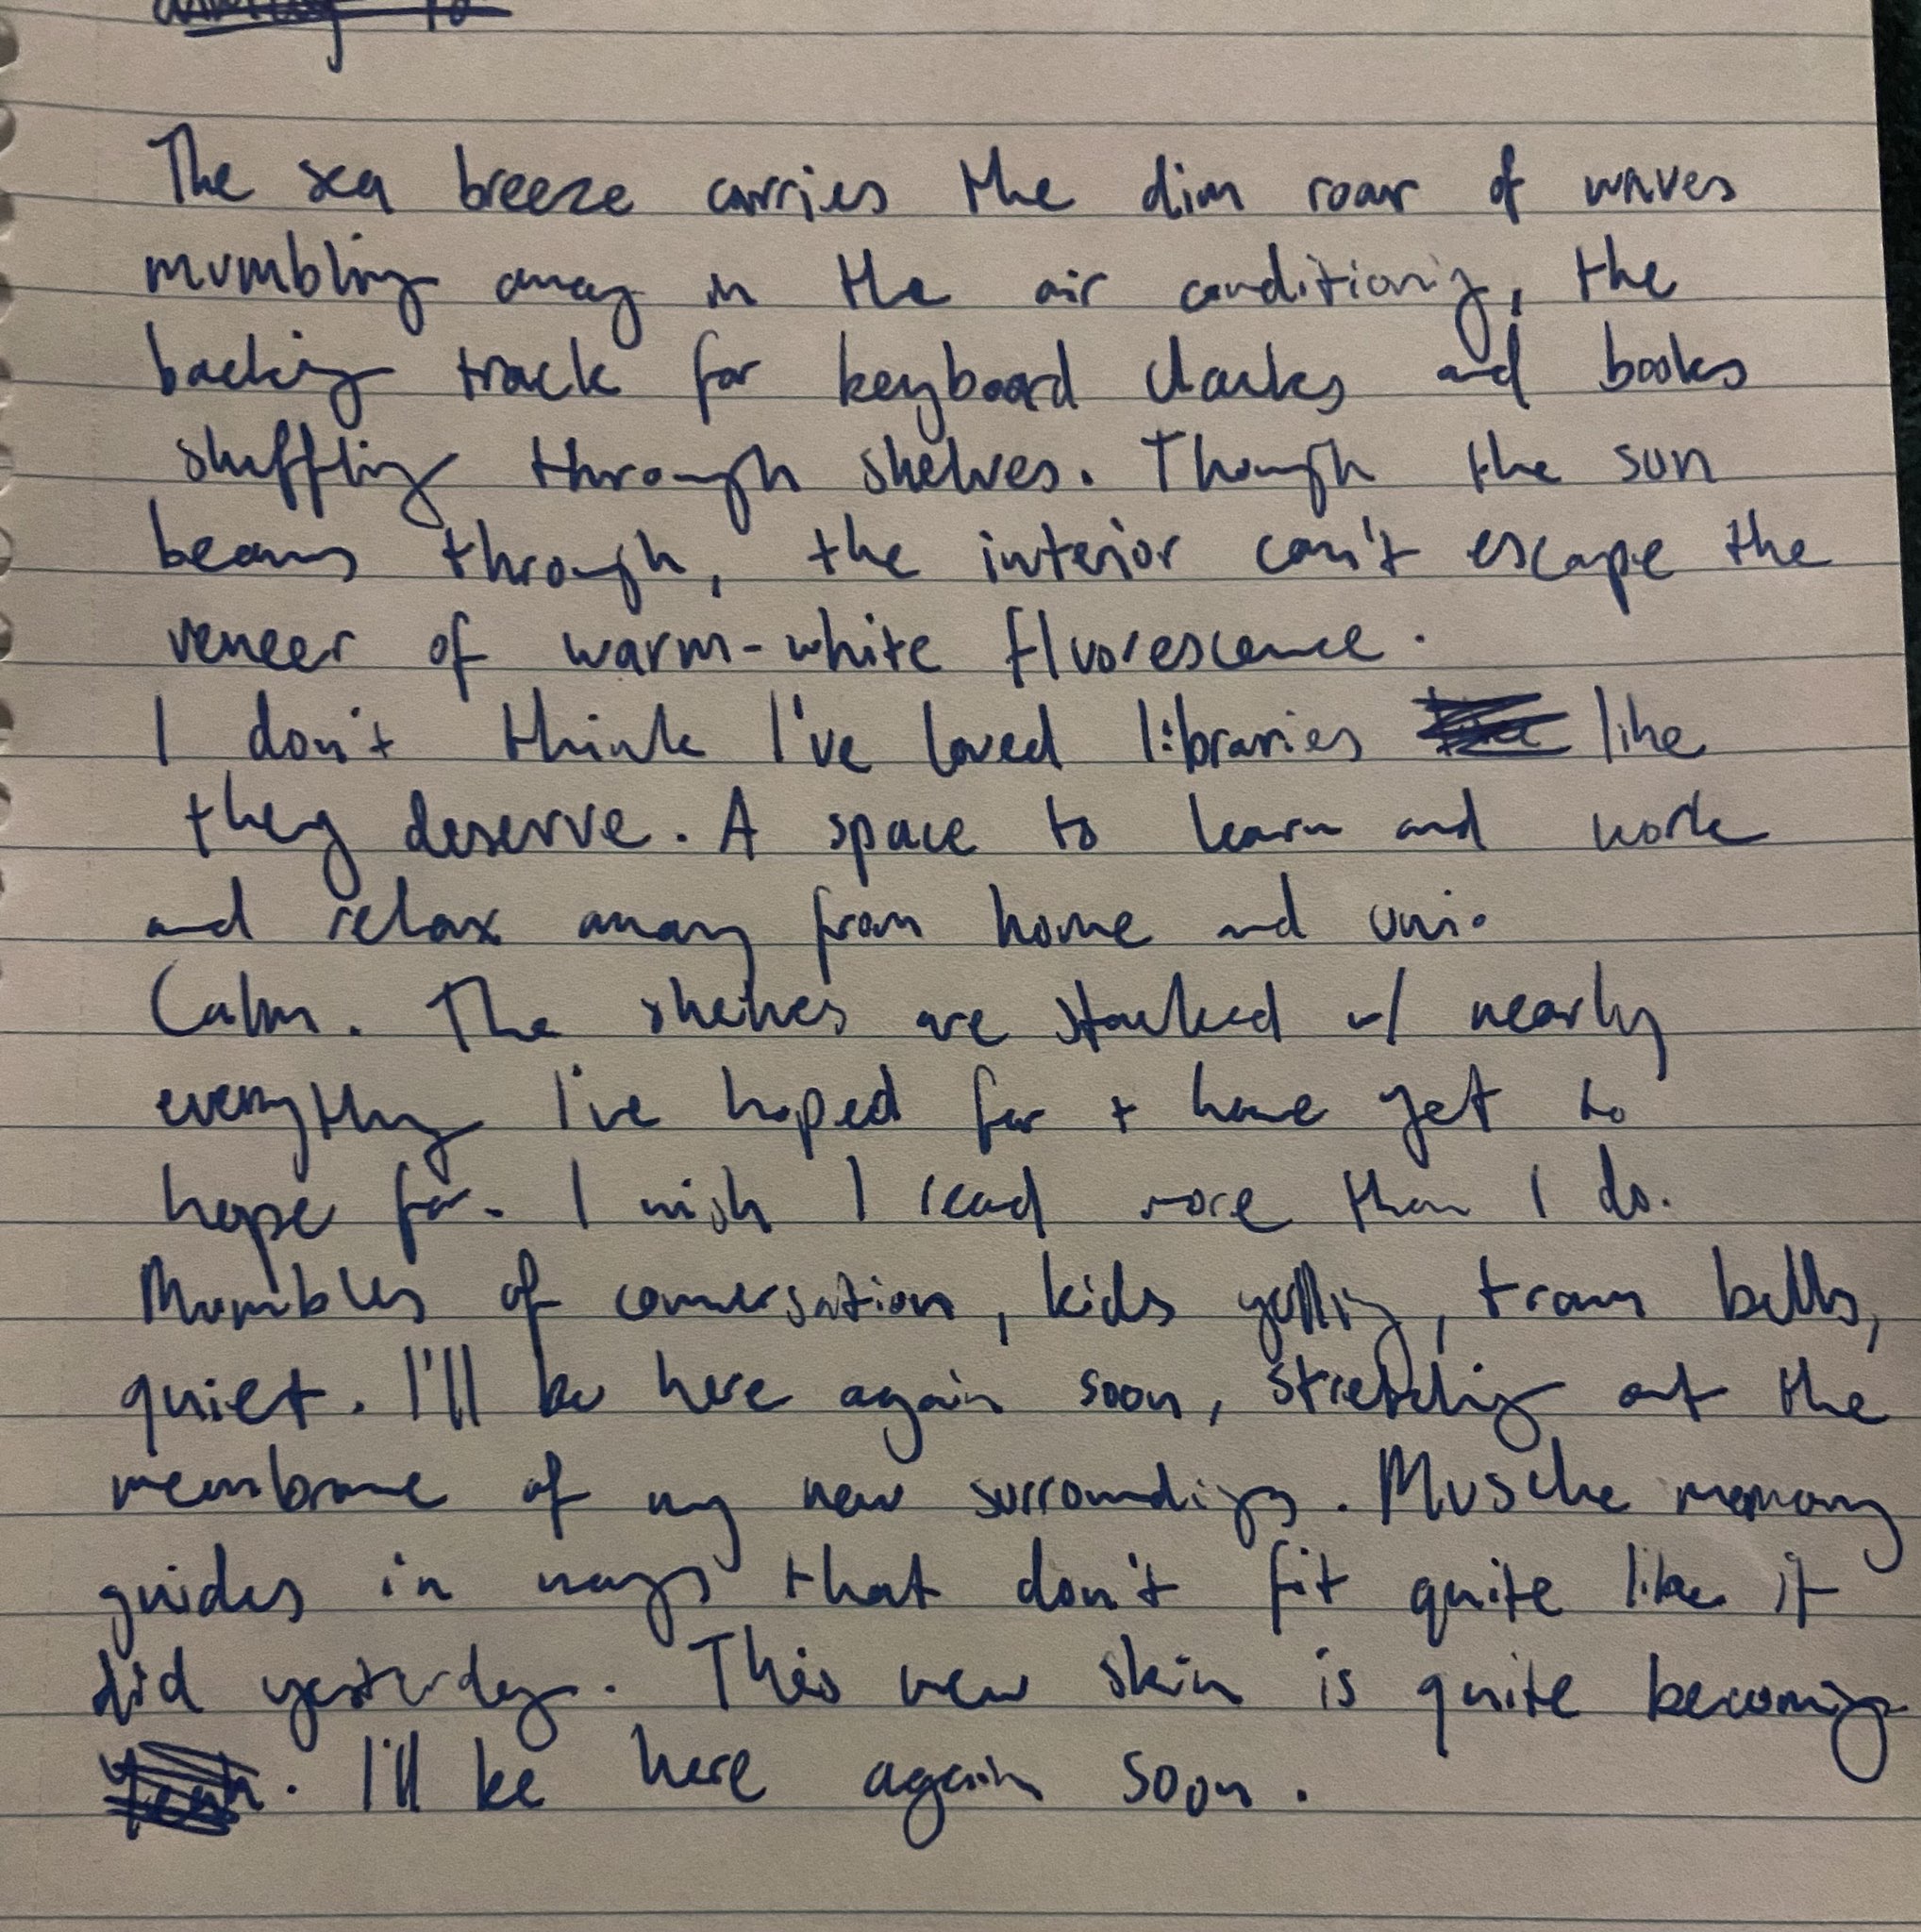 The sea breeze carries the dim roar of waves
mumbling away in the air conditioning, the
backing track for keyboard clacks and books
shuffling through shelves. Though the sun
beams through, the interior can't escape the
veneer of warm-white fluorescence.
I don't think I've loved libraries like
they deserve. A space to learn and work
and relax away from home and uni.
Calm. The shelves are stacked w/ nearly
everything I've hoped for + have yet to
hope for. I wish I read more than I do.
Mumbles of conversation, kids yelling, tram bells,
quiet. I'll be here again soon, stretching out the
membrane of my new surroundings. Muscle memory
guides in ways that don't fit quite like it
did yesterday. This new skin is quite becoming
. I'll be here again soon.